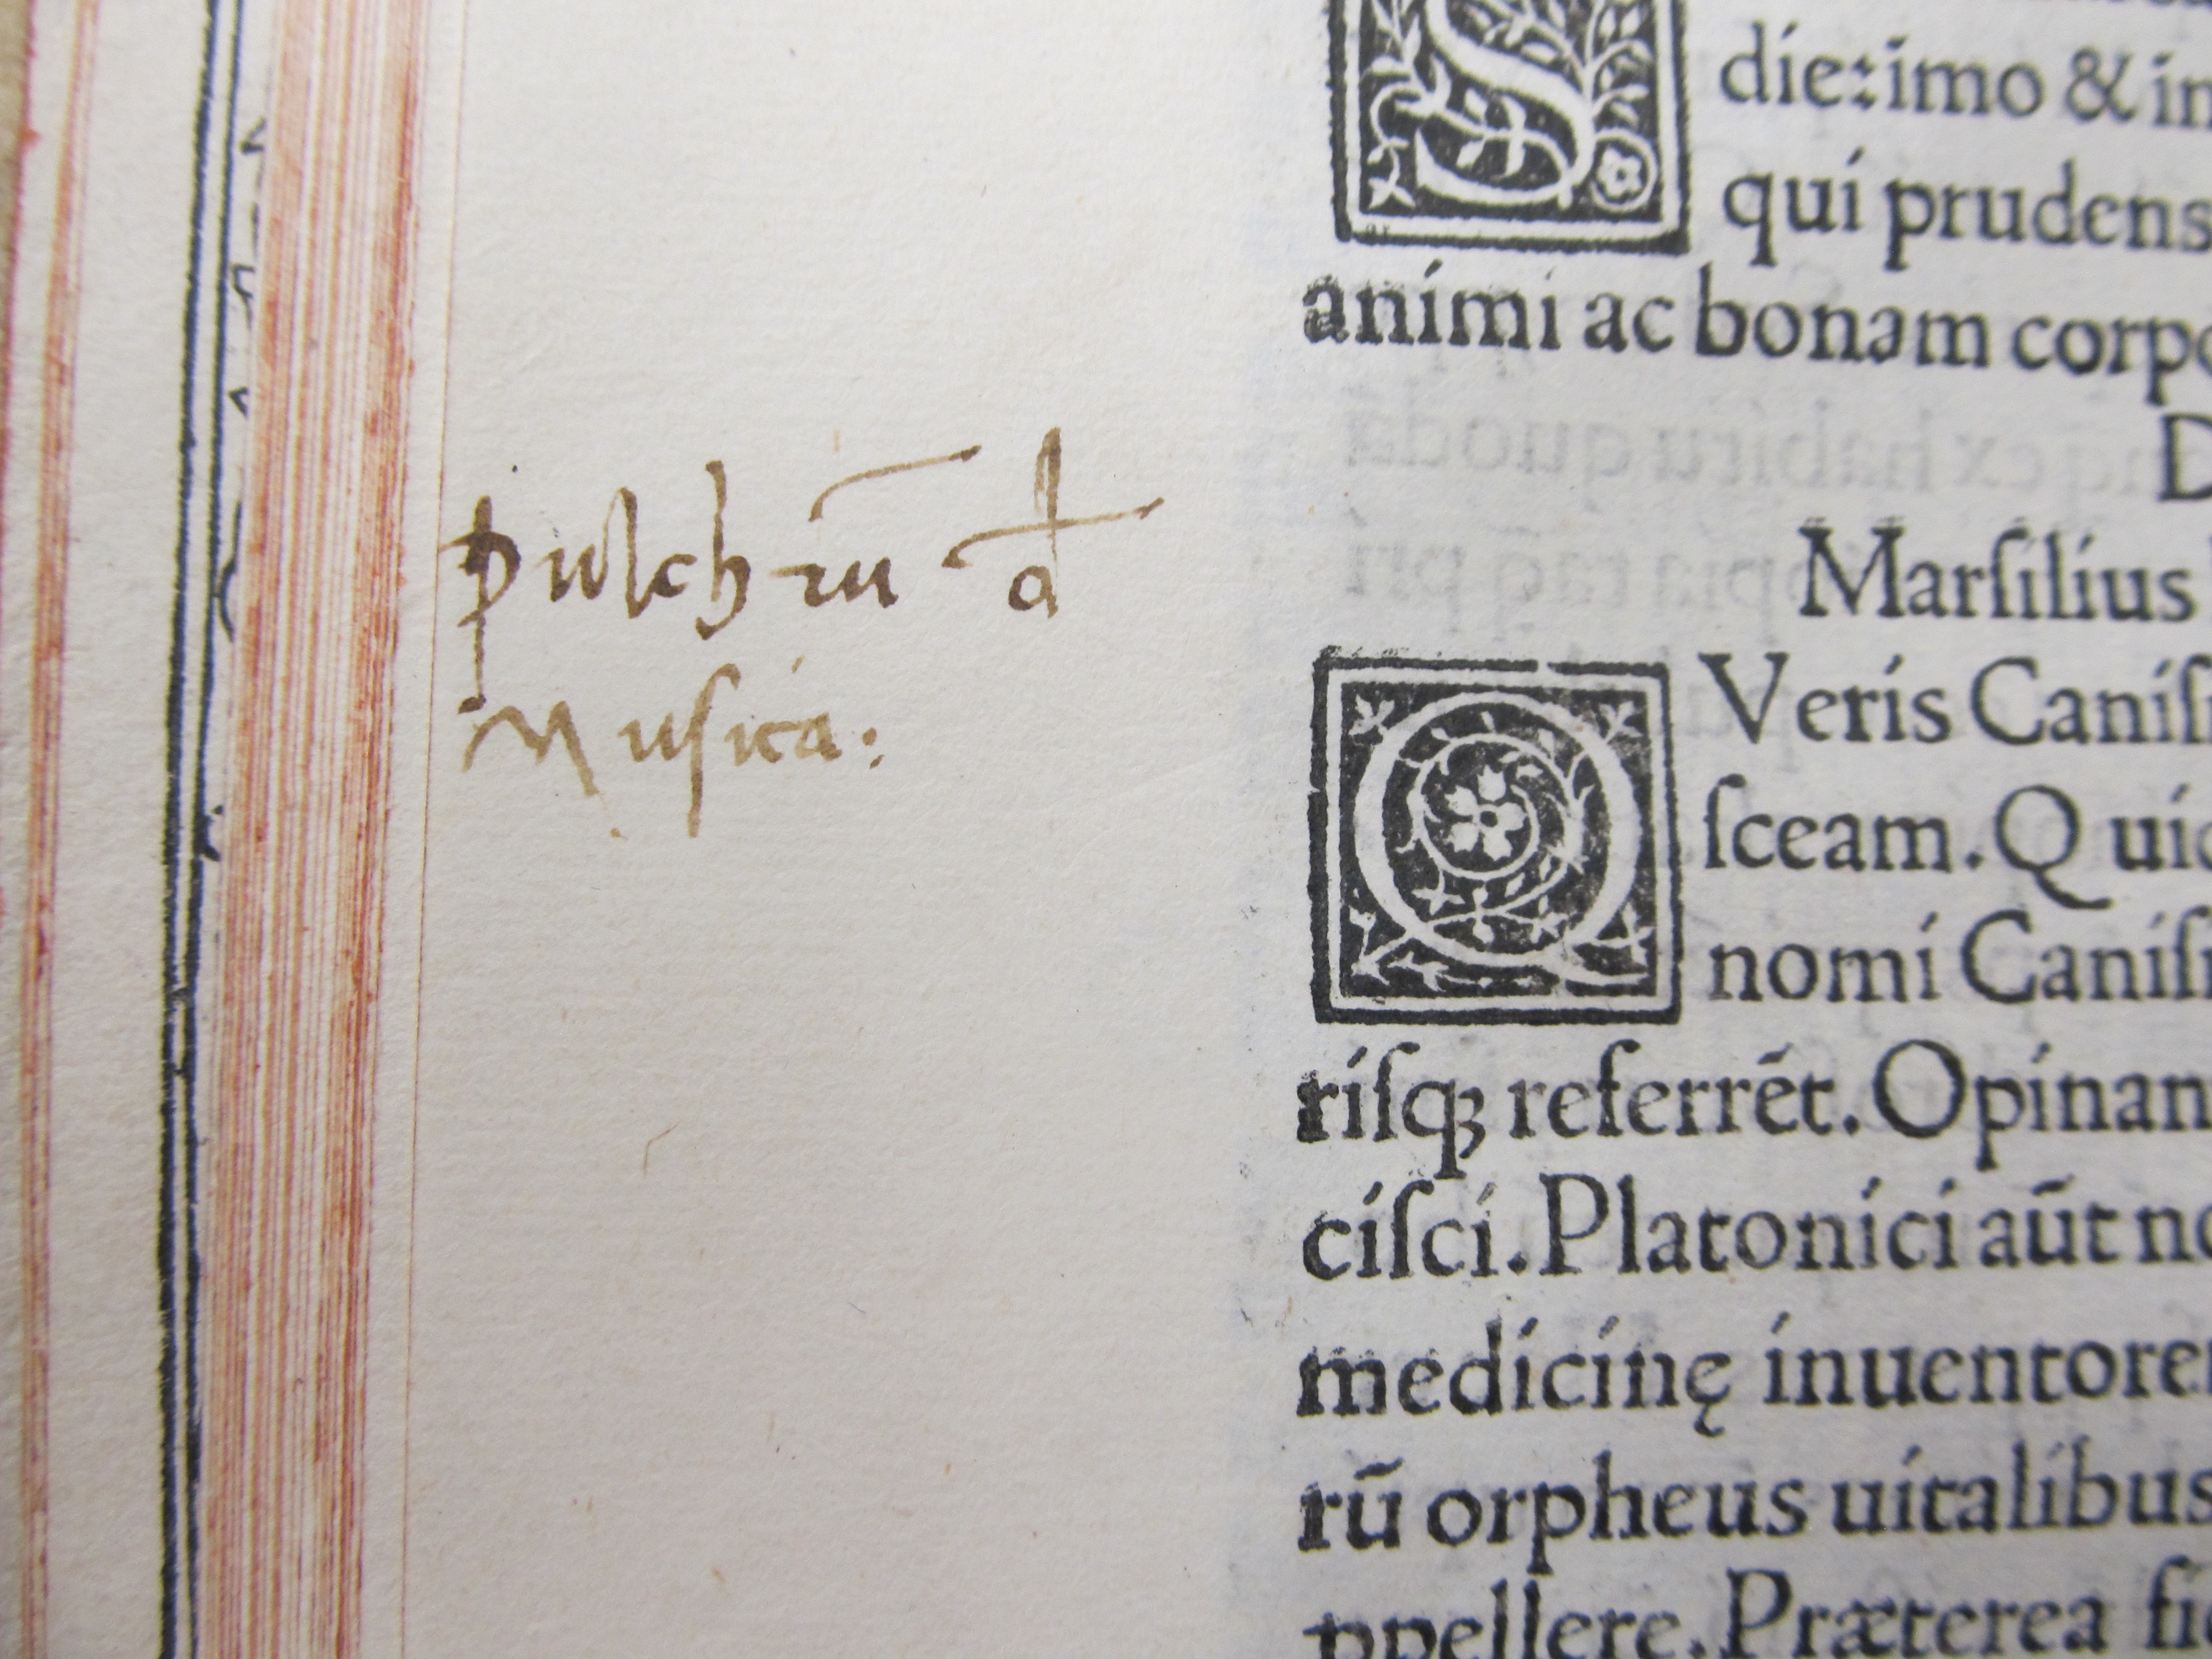 pulchrū đ
Musica:
S
die:imo & in
qui prudens
animi ac bonam corpo
D
Marſilius
Q
Veris Caniſ
ſceam. Quid
nomi Caniſi
riſqꝫ referrēt. Opinan
ciſci. Platonici aūt no
medicinę inuentore
rū orpheus uitalibus
ꝓpellere. Præterea